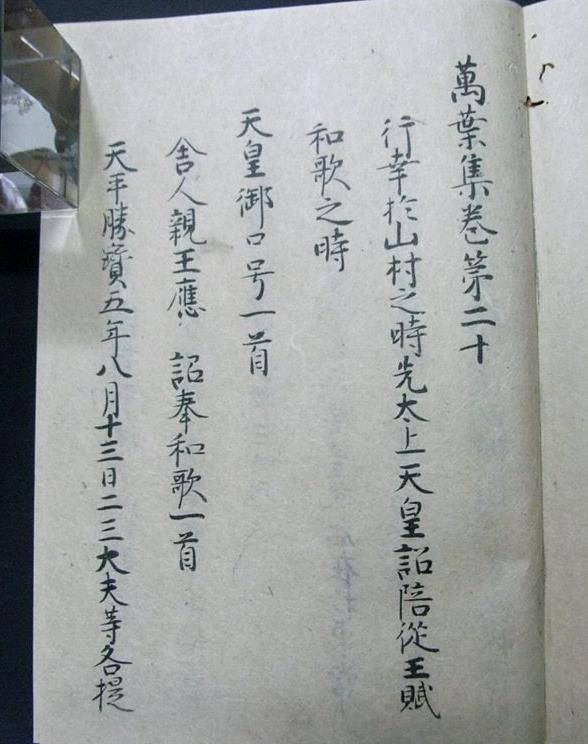 萬葉集巻第二十
行幸於山村之時先太上天皇詔陪從王賦
和歌之時
天皇御口号一首
舎人親王應　詔奉和歌一首
天平勝寳五年八月十三日二三大夫等各提